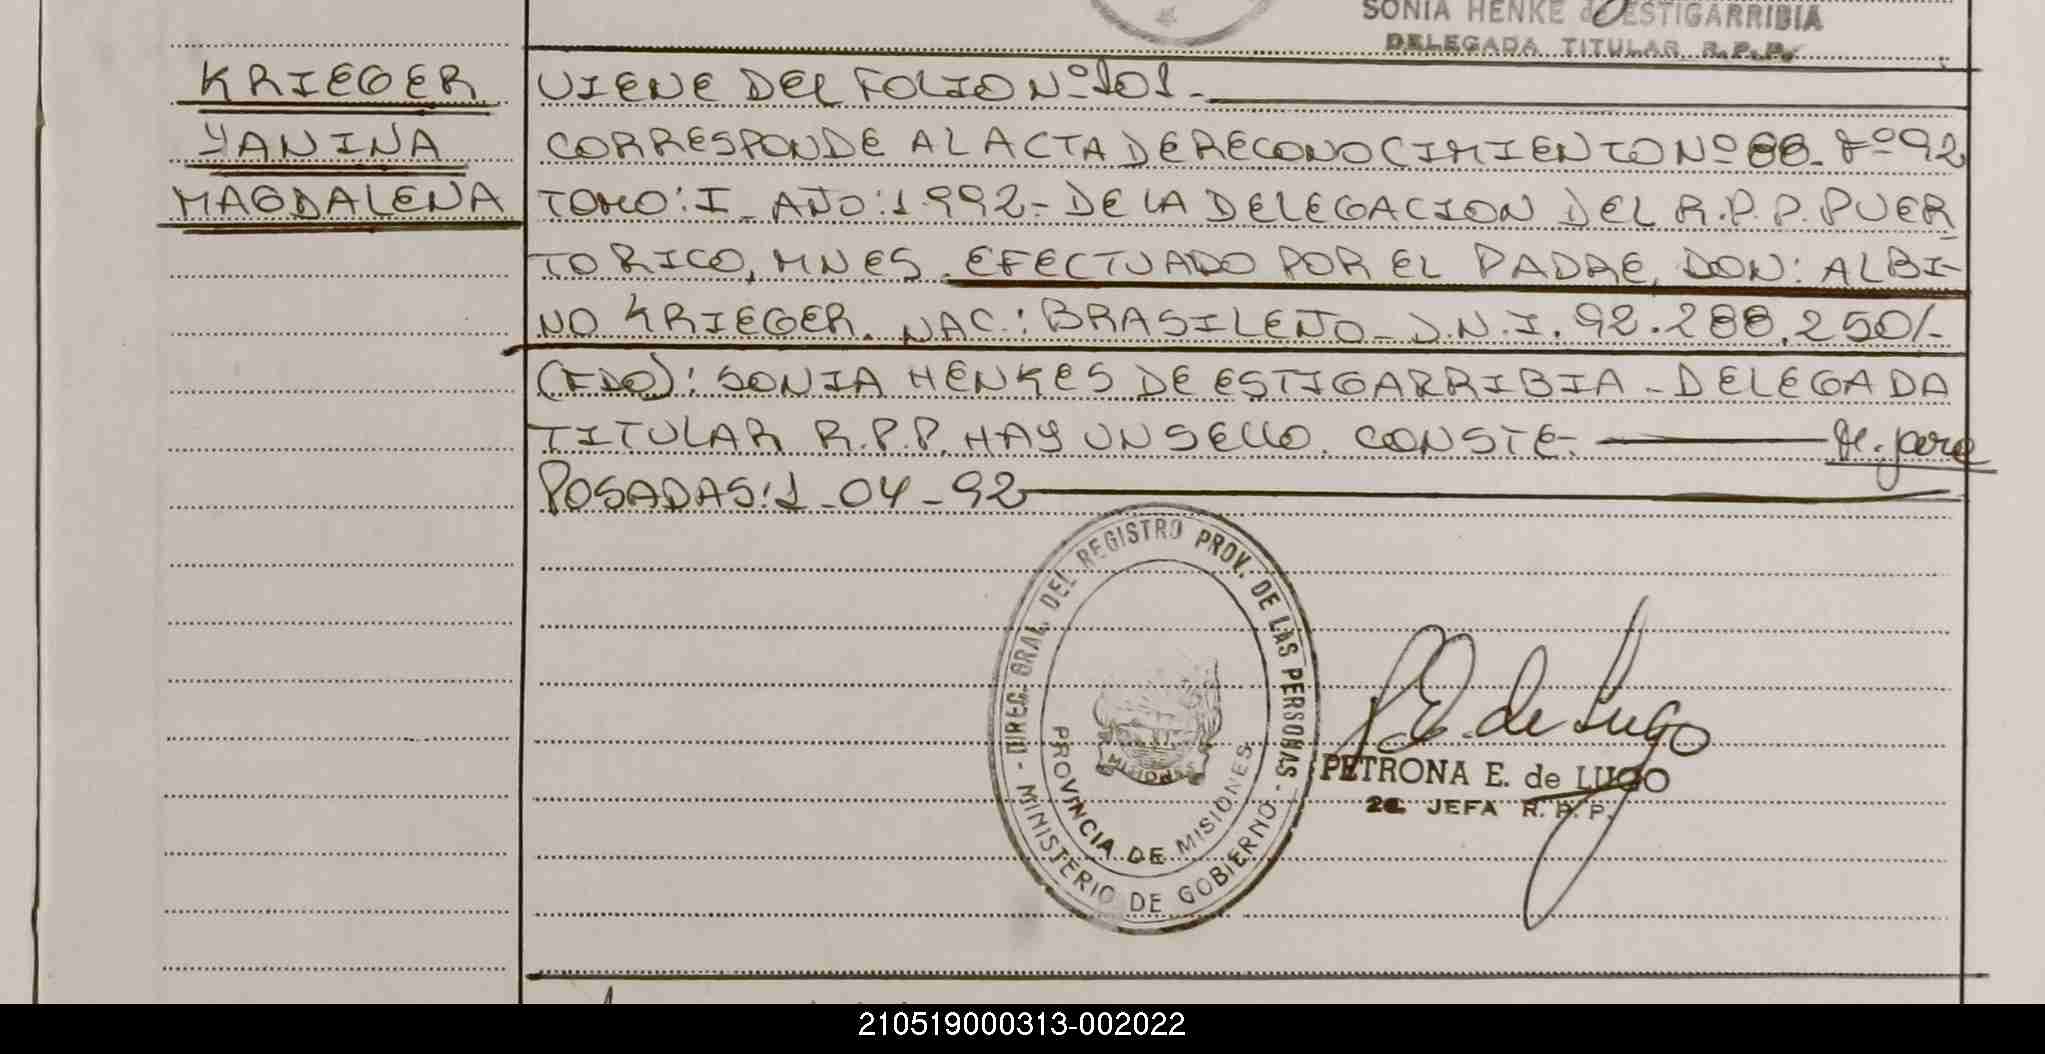 SONIA HENKE de ESTIGARRIBIA
DELEGADA TITULAR R.P.P.
KRIEGER
YANINA
MAGDALENA
VIENE DEL FOLIO Nº 101.-
CORRESPONDE AL ACTA DE RECONOCIMIENTO Nº 88. Fº 92
TOMO: I - AÑO: 1.992.- DE LA DELEGACION DEL R.P.P. PUER
TO RICO, MNES. EFECTUADO POR EL PADRE, DON: ALBI-
NO KRIEGER. NAC.: BRASILEÑO - D.N.I. 92.288.250/-
(FDO): SONIA HENKES DE ESTIGARRIBIA - DELEGADA
TITULAR R.P.P. HAY UN SELLO. CONSTE.-
POSADAS: 1-04-92
DIREC. GRAL. DEL REGISTRO PROV. DE LAS PERSONAS -
MINISTERIO DE GOBIERNO
MISIONES
PROVINCIA DE MISIONES
P.E. de Lugo
PETRONA E. de LUGO
2a. JEFA R.P.P.
210519000313-002022